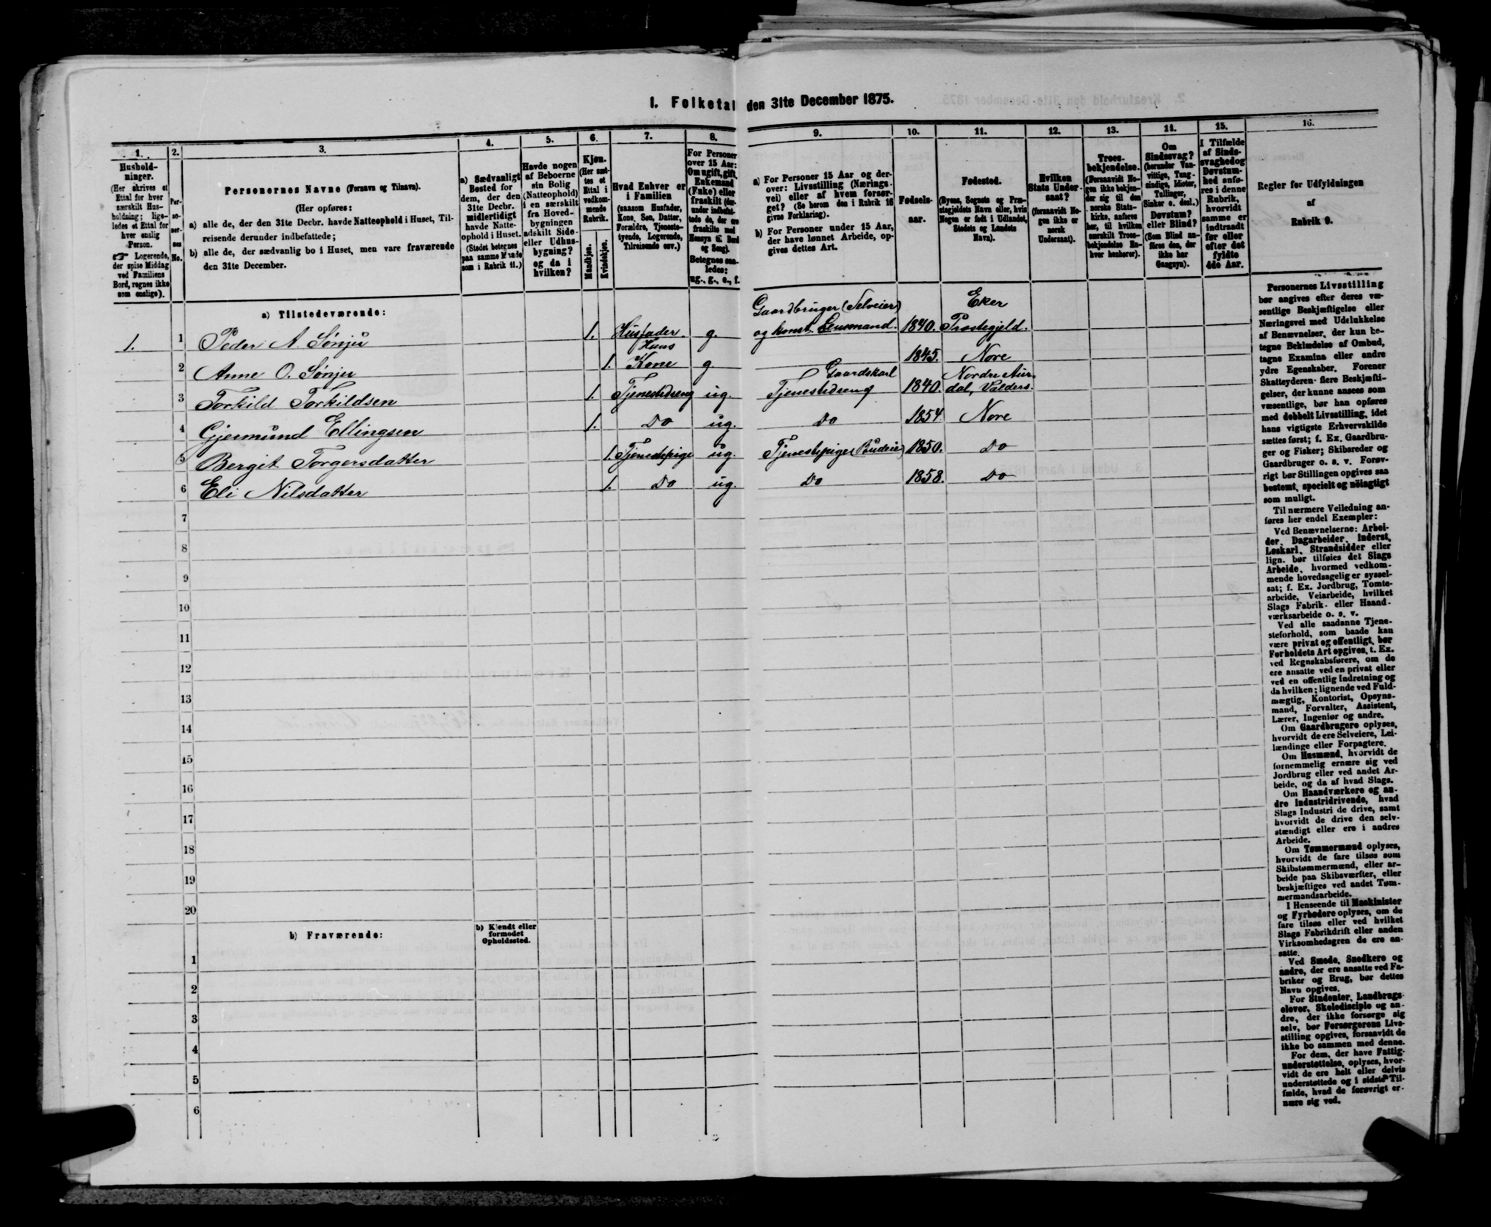 1. Folketal den 31te December 1875.
1.
2.
3.
4.
5.
6.
7.
8.
9.
10.
11.
12.
13.
14.
15.
16.
Hushold-
ninger.
(Her skrives et
Ettal for hver
særskilt Hus-
holdning; lige-
ledes et Ettal for
hver enslig
Person.
Logerende,
der spise Middag
ved Familiens
Bord, regnes ikke
som enslige).
Personernes Navne (Fornavn og Tilnavn).
(Her opføres:
a) alle de, der den 31te Decbr. havde Natteophold i Huset, Til-
reisende derunder indbefattede;
b) alle de, der sædvanlig bo i Huset, men vare fraværende
den 31te December.
a) Sædvanligt
Bosted for
dem, der den
31te Decbr.
midlertidigt
havde Natte-
ophold i Huset.
Havde nogen
af Beboerne
sin Bolig
(Natteophold)
i en særskilt
fra Hoved-
bygningen
adskilt Side-
eller Udhus-
bygning?
og da i
hvilken?
Kjøn.
(Her sæt-
tes et
Ettal i
vedkom-
mende
Rubrik.
Mandkjøn.
Kvindekjøn.
Hvad Enhver er
i Familien
(saasom Husfader,
Kone, Søn, Datter,
Forældre, Tjeneste-
tyende, Logerende,
Tilreisende osv.)
For Personer
over 15 Aar:
Om ugift, gift,
Enkemand
(Enke) eller
fraskilt
Betegnes saa-
ledes:
ug., g., e., f.
a) For Personer 15 Aar og der-
over: Livsstilling (Nærings-
vei) eller af hvem forsør-
get? (Se herom den i Rubrik 16
givne Forklaring).
b) For Personer under 15 Aar,
der have lønnet Arbeide, op-
gives dettes Art.
Fødsels-
aar.
Fødested.
(Byens, Sognets og Præ-
stegjeldets Navn eller, hvis
Nogen er født i Udlandet,
Stedets og Landets
Navn).
Hvilken
Stats Under-
saat?
(forsaavidt No-
gen ikke er
norsk
Undersaat).
Troes-
bekjendelse.
(Forsaavidt No-
gen ikke bekjen-
der sig til den
norske Stats-
kirke, anføres
her, til hvilken
særskilt Troes-
bekjendelse En-
hver henhører).
Om
Sindssvag?
(herunder Van-
vittige, Tung-
sindige, Idioter,
Tullinger,
Sinker o. desl.)
Døvstum?
eller Blind?
(Som Blind an-
føres den, der
ikke har
Gangsyn).
I Tilfælde
af Sinds-
svaghed og
Døvstum-
hed anfø-
res i denne
Rubrik,
hvorvidt
samme er
indtraadt
før eller
efter det
fyldte
4de Aar.
Regler for Udfyldningen
af
Rubrik 9.
a) Tilstedeværende:
1. 1 Peder A. Sønju 1. Husfader g. Gaardbruger (Selveier) og konst. Lensmand. 1840. Eker Præstegjeld.
2 Anne O. Sønju 1. Huus Kone g. 1845. Nore
3 Torkild Torkildsen 1. Tjenestedreng ug. Gaardskarl Tjenestedreng 1840. Nordre Aur- dal, Valders.
4 Gjermund Ellingsen 1. Do ug. Do 1854 Nore
5 Bergit Torgersdatter 1. Tjenestepige ug. Tjenestepige (Budeie) 1850. Do
6 Eli Nilsdatter 1. Do ug. Do 1858. Do
7
8
9
10
11
12
13
14
15
16
17
18
19
20
b) Fraværende:
b) Kjendt eller
formodet
Opholdssted.
1
2
3
4
5
6
Personernes Livsstilling
bør angives efter deres væ-
sentlige Beskjæftigelse eller
Næringsvei med Udelukkelse
af Benævnelser, der kun be-
tegne Beklædelse af Ombud,
tagne Examina eller andre
ydre Egenskaber. Forener
Skatteyderen flere Beskjæfti-
gelser, der kunne ansees som
væsentlige, bør han opføres
med dobbelt Livsstilling, idet
hans vigtigste Erhvervskilde
sættes først; f. Ex. Gaardbru-
ger og Fisker; Skibsreder og
Gaardbruger o. s. v. Forøv-
rigt bør Stillingen opgives saa
bestemt, specielt og nøiagtigt
som muligt.
Til nærmere Veiledning an-
føres her endel Exempler:
Ved Benævnelserne: Arbei-
der, Dagarbeider, Inderst,
Løskarl, Strandsidder eller
lign. bør tilføies det Slags
Arbeide, hvormed vedkom-
mende hovedsagelig er syssel-
sat; f. Ex. Jordbrug, Tomte-
arbeide, Veiarbeide, hvilket
Slags Fabrik- eller Haand-
værksarbeide o. s. v.
Ved alle saadanne Tjene-
steforhold, som baade kan
være privat og offentligt, bør
Forholdets Art opgives, t. Ex.
ved Regnskabsførere, om de
ere ansatte ved en privat eller
ved en offentlig Indretning og
da hvilken; lignende ved Fuld-
mægtig, Kontorist, Opsyns-
mand, Forvalter, Assistent,
Lærer, Ingeniør og andre.
Om Gaardbrugere oplyses,
hvorvidt de ere Selveiere, Lei-
lændinge eller Forpagtere.
Om Husmænd, hvorvidt de
fornemmelig ernære sig ved
Jordbrug eller ved andet Ar-
beide, og da af hvad Slags.
Om Haandværkere og an-
dre Industridrivende, hvad
Slags Industri de drive, samt
hvorvidt de drive den selv-
stændigt eller ere i andres
Arbeide.
Om Tømmermænd oplyses,
hvorvidt de fare tilsøs som
Skibstømmermænd, eller ar-
beide paa Skibsværfter, eller
beskjæftiges ved andet Tøm-
mermandsarbeide.
I Henseende til Maskinister
og Fyrbødere oplyses, om de
fare tilsøs eller ved hvilket
Slags Fabrikdrift eller anden
Virksomhedsgren de ere an-
satte.
Ved Smede, Snedkere og
andre, der ere ansatte ved Fa-
briker og Brug, bør dettes
Navn opgives.
For Studenter, Landbrugs-
elever, Skoledisciple og an-
dre, der ikke forsørge sig
selv, bør Forsørgerens Livs-
stilling opgives, forsaavidt de
ikke bo sammen med denne.
For dem, der have Fattig-
understøttelse, oplyses, hvor-
vidt de ere helt eller delvis
understøttede og i sidste Til-
fælde, hvad de forøvrigt er-
nære sig ved.